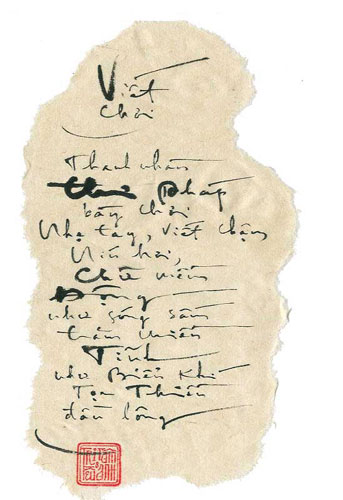 Viết
chơi
Thanh nhàn
thư Pháp
bày chơi
Nhẹ tay, viết chậm
Nín hơi,
Chờ
Động
như sóng sấm
trăm miền
Tĩnh
như Biển Khi
Tọa Thiền
đầu lòng